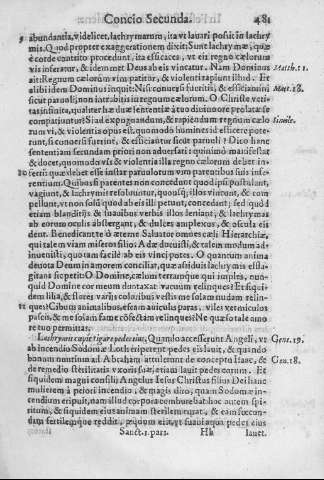 Concio Secunda. 481
abundantia, videlicet, lachrymarum, ita vt lauari possit in lachry
mis. Quod propter exaggerationem dixit: Sunt lachrymæ, quæ
è corde contrito procedunt, ita efficaces, vt eis regno cælorum
vis inferatur, & idemmet Deus ab eis vincatur. Nam Dominus Matth.11.
ait: Regnum cælorum vim patitur, & violenti rapiunt illud. Et
alibi idem Dominus inquit: Nisi conuersi fueritis, & efficiamini Mat.18.
sicut paruuli, non intrabitis in regnum cælorum. O Christe veri
tas infinita, qualiter hæ duæ sententiæ à tuo diuino ore prolatæ se
compatiuntur? Si ad expugnandum, & rapiendum regnum cælo Simile.
rum vi, & violentia opus est, quomodo homines id efficere pote
runt, si conuersi fuerint, & efficiantur sicut paruuli? Dico hanc
sententiam secundam priori non aduersari: quinimò manifestat
& docet, quomodo vis & violentia illa regno cælorum debet in
ferri: quæ debet esse instar paruulorum vim parentibus suis infe-
rentium. Quibus si parentes non concedunt quod ipsi postulant,
vagiunt, & lachrymis resoluuntur, quousque illos vincunt, & com
pellunt, vt non solùm quod ab eis illi petunt, concedant; sed quòd
etiam blanditijs & suauibus verbis illos leniant, & lachrymas
ab eorum oculis abstergant, & dulces amplexus, & oscula eis
dent. Benedicant te ô æterne Saluator omnes cæli Hierarchiæ,
qui talem viam miseros filios Adæ docuisti, & talem modum ad-
inuenisti, quo tam facilè ab eis vinci potes. O quantum anima
deuota Deum in amorem conciliat, quæ assiduis lachrymis effla-
gitans se petit: O Domine, cælum terramque qui imples, nun-
quid Domine cor meum duntaxat vacuum relinques? Et si qui-
dem lilia, & flores varijs coloribus vestis me solam nudam relin-
ques? Cibum animalibus, escam auiculis paras, viles vermiculos
pascis, & me solam fame confectam relinques? Ne quæso tale amo
re tuo permittas.
Lachrymis cupit rigare pedes eius, Quando accesserunt Angeli, vt Gen.19.
ab incendio Sodomæ Loth eriperent pedes eis lauit, & quando
bonum nuntium ad Abraham attulerunt de conceptu Isaac, & Gen.18.
de remedio sterilitatis vxoris suæ, etiam lauit pedes eorum. Et
siquidem magni consilij Angelus Iesus Christus filius Dei hanc
mulierem à peiori incendio, & magis diro, quam Sodomæ in-
cendium eripuit, nam illud corpora comburebat hoc autem spi-
ritum, & siquidem eius animam sterilem erat, & eam fœcun-
dam fertilemque reddit, æquum erat, vt suauis aqua pedes eius
Sanct. 1. pars. Hh lauet.